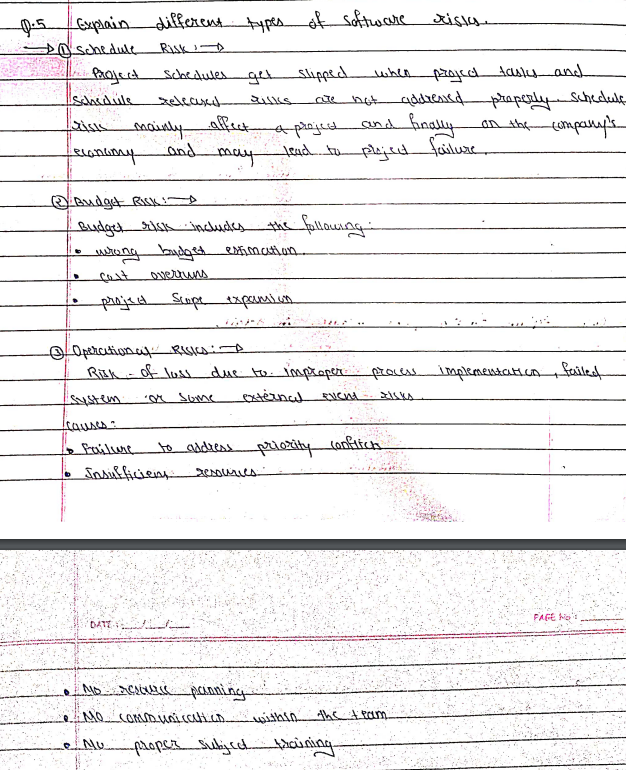 Q.5 Explain different types of software risks.
→ ① Schedule Risk :→
Project schedules get slipped when project tasks and
schedule released risks are not addressed properly. Schedule
risk mainly affect a project and finally on the company's
economy and may lead to project failure.
② Budget Risk :→
Budget risk includes the following:
• wrong budget estimation.
• cost overruns
• project scope expansion
③ Operational Risks: →
Risk of loss due to improper process implementation, failed
system or some external event risks.
causes:
• Failure to address priority conflicts
• Insufficient resources
DATE : __/__/__
PAGE No :
• No resource planning
• No communication within the team
• No proper subject training